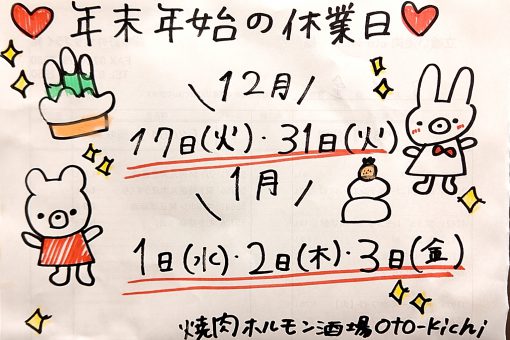 年末年始の休業日
12月
17日(火)・31日(火)
1月
1日(水)・2日(木)・3日(金)
焼肉ホルモン酒場oto-kichi